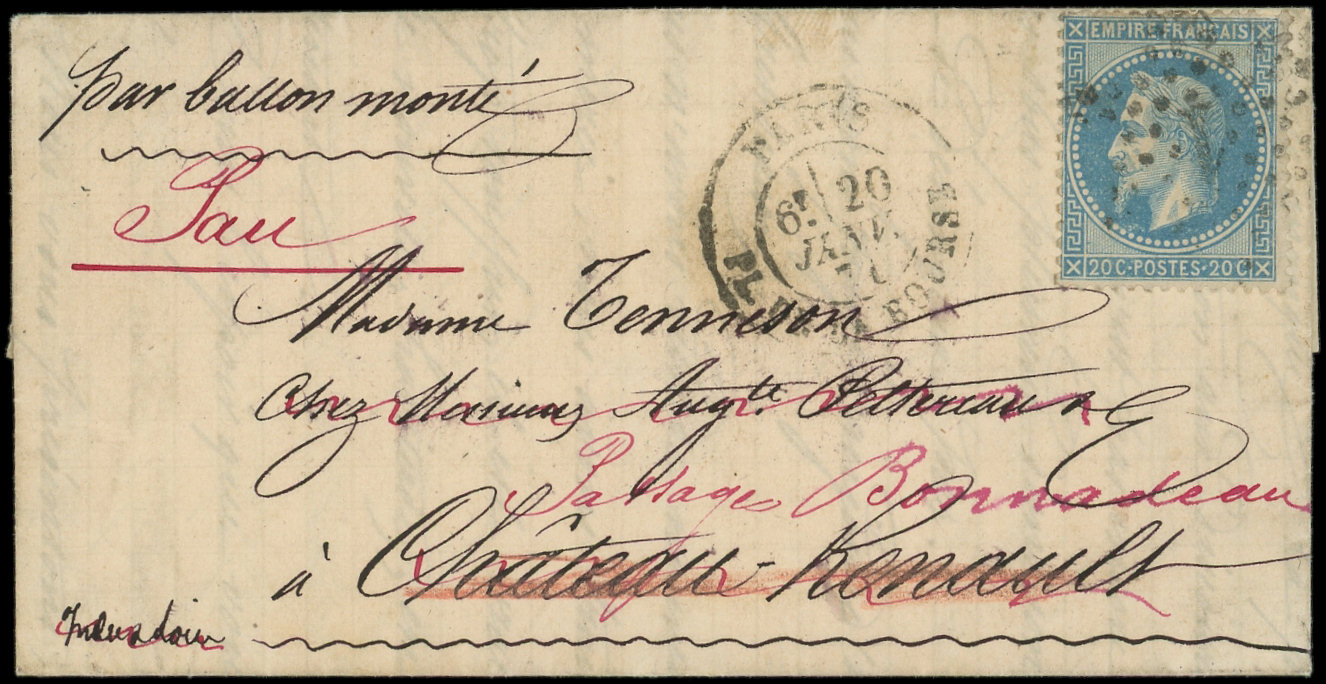 par ballon monté
EMPIRE FRANÇAIS
20 C·POSTES·20 C
PARIS
6E 20
JANV.
PL. DE LA BOURSE
Pau
Madame Tenneson
Chez Augte. Peltereau
Passage Bonnadeau
à Château-Renault
Indre & Loire